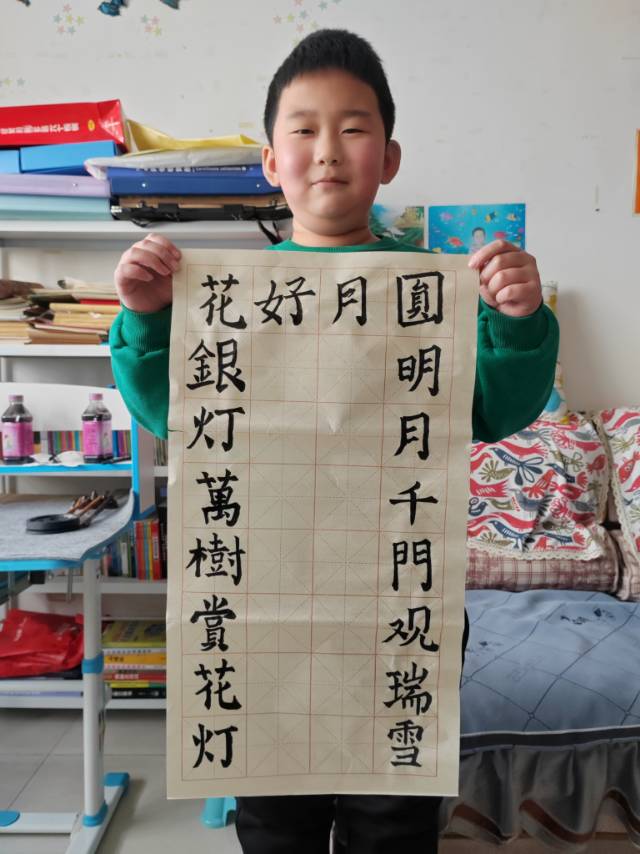 花好月圓
明月千門观瑞雪
銀灯萬樹賞花灯